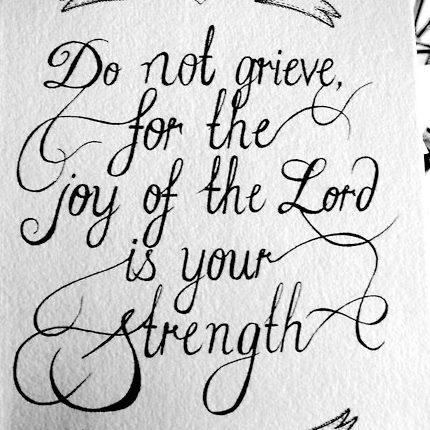 Do not grieve,
for the
joy of the Lord
is your
strength